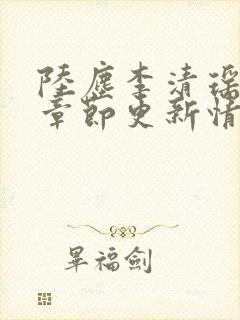 陸塵李清瑤
章節更新情
畢福劍